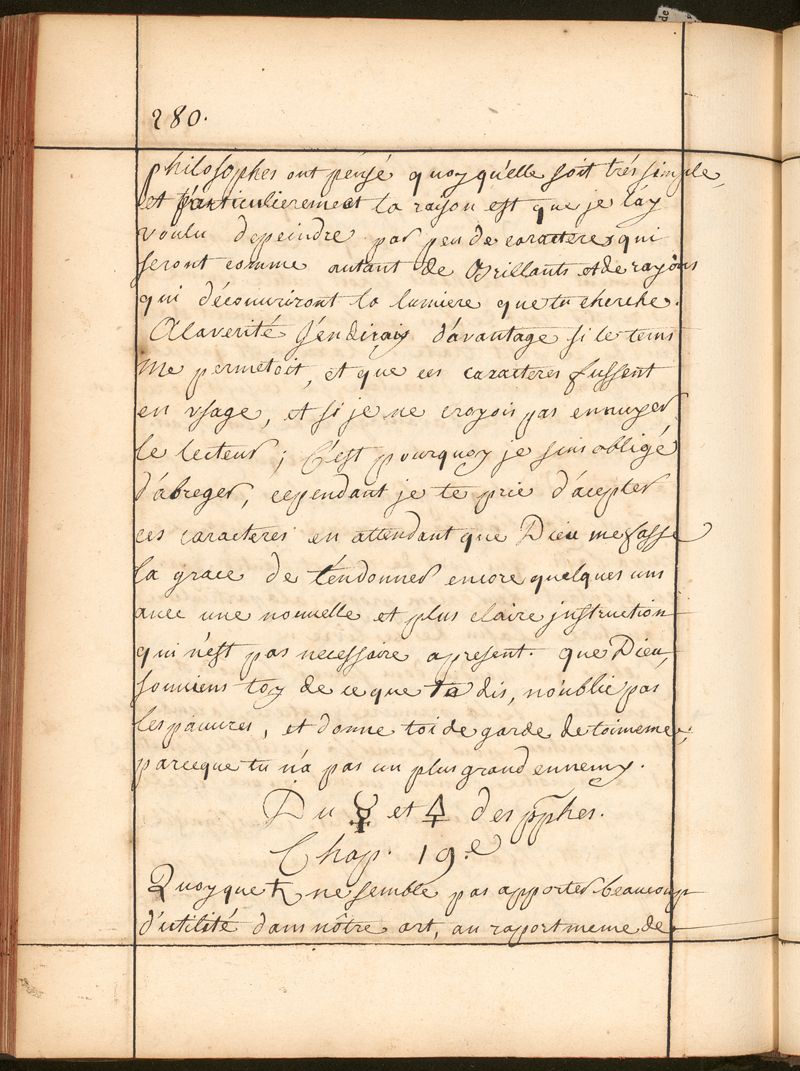 280.
philosophes ont pensé quoy qu'elle soit trés simple,
et particulierement la raison est que je l'ay
voulu depeindre par peu de caracteres qui
seront comme autant de Brillants et de rayons
qui découuriront la lumiere que tu cherche.
A la verité J'en dirais d'avantage si le tems
me permetoit, et que ces caracteres fussent
en vsage, et si je ne croyois pas ennuyer
le lecteur; C'est pourquoy je suis obligé
d'abreger, cependant je te prie d'acepter
ces caracteres en attendant que Dieu me fasse
la grace de t'en donner encore quelques uns
auec une nouuelle et plus claire jnstruction
qui n'est pas necessaire apresent. que Dieu
souuiens toy de ce que ta dis, n'oublie pas
les pauures, et donne toi de garde de toi meme,
parceque tu n'a pas un plus grand ennemy.
Du ☿ et 🜍 des pphes.
Chap. 19.e
Quoy que ♄ ne semble pas apporter beaucoup
d'utilité dans nôtre art, au raport meme de
de